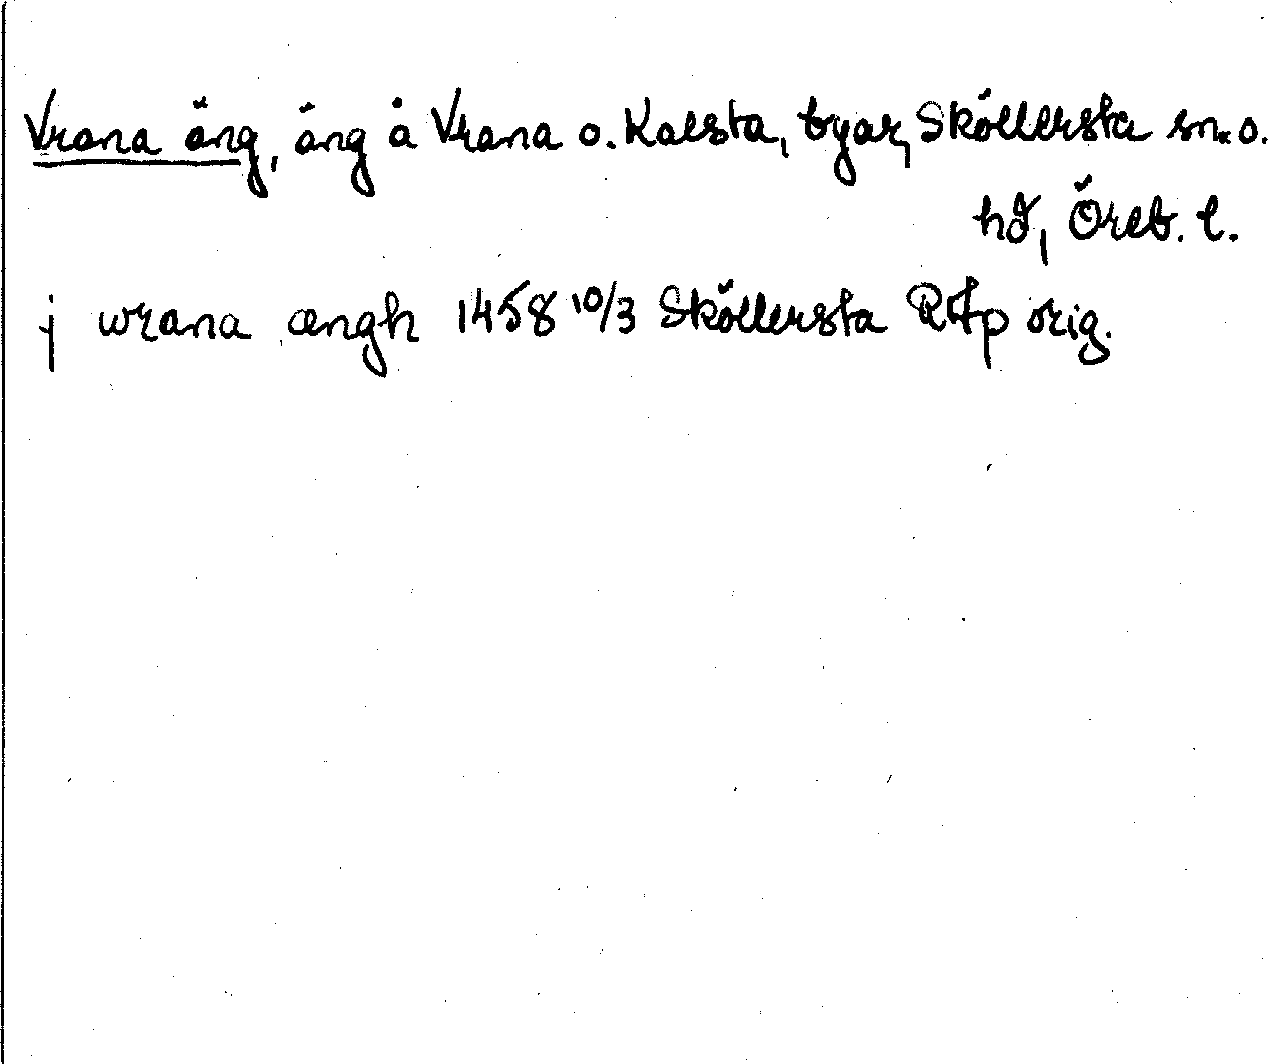 Vrana äng, äng å Vrana o. Kalsta, byar, Sköllersta sn. o.
hd, Öreb. l.
j wrana ængh 1458 10/3 Sköllersta RAp orig.